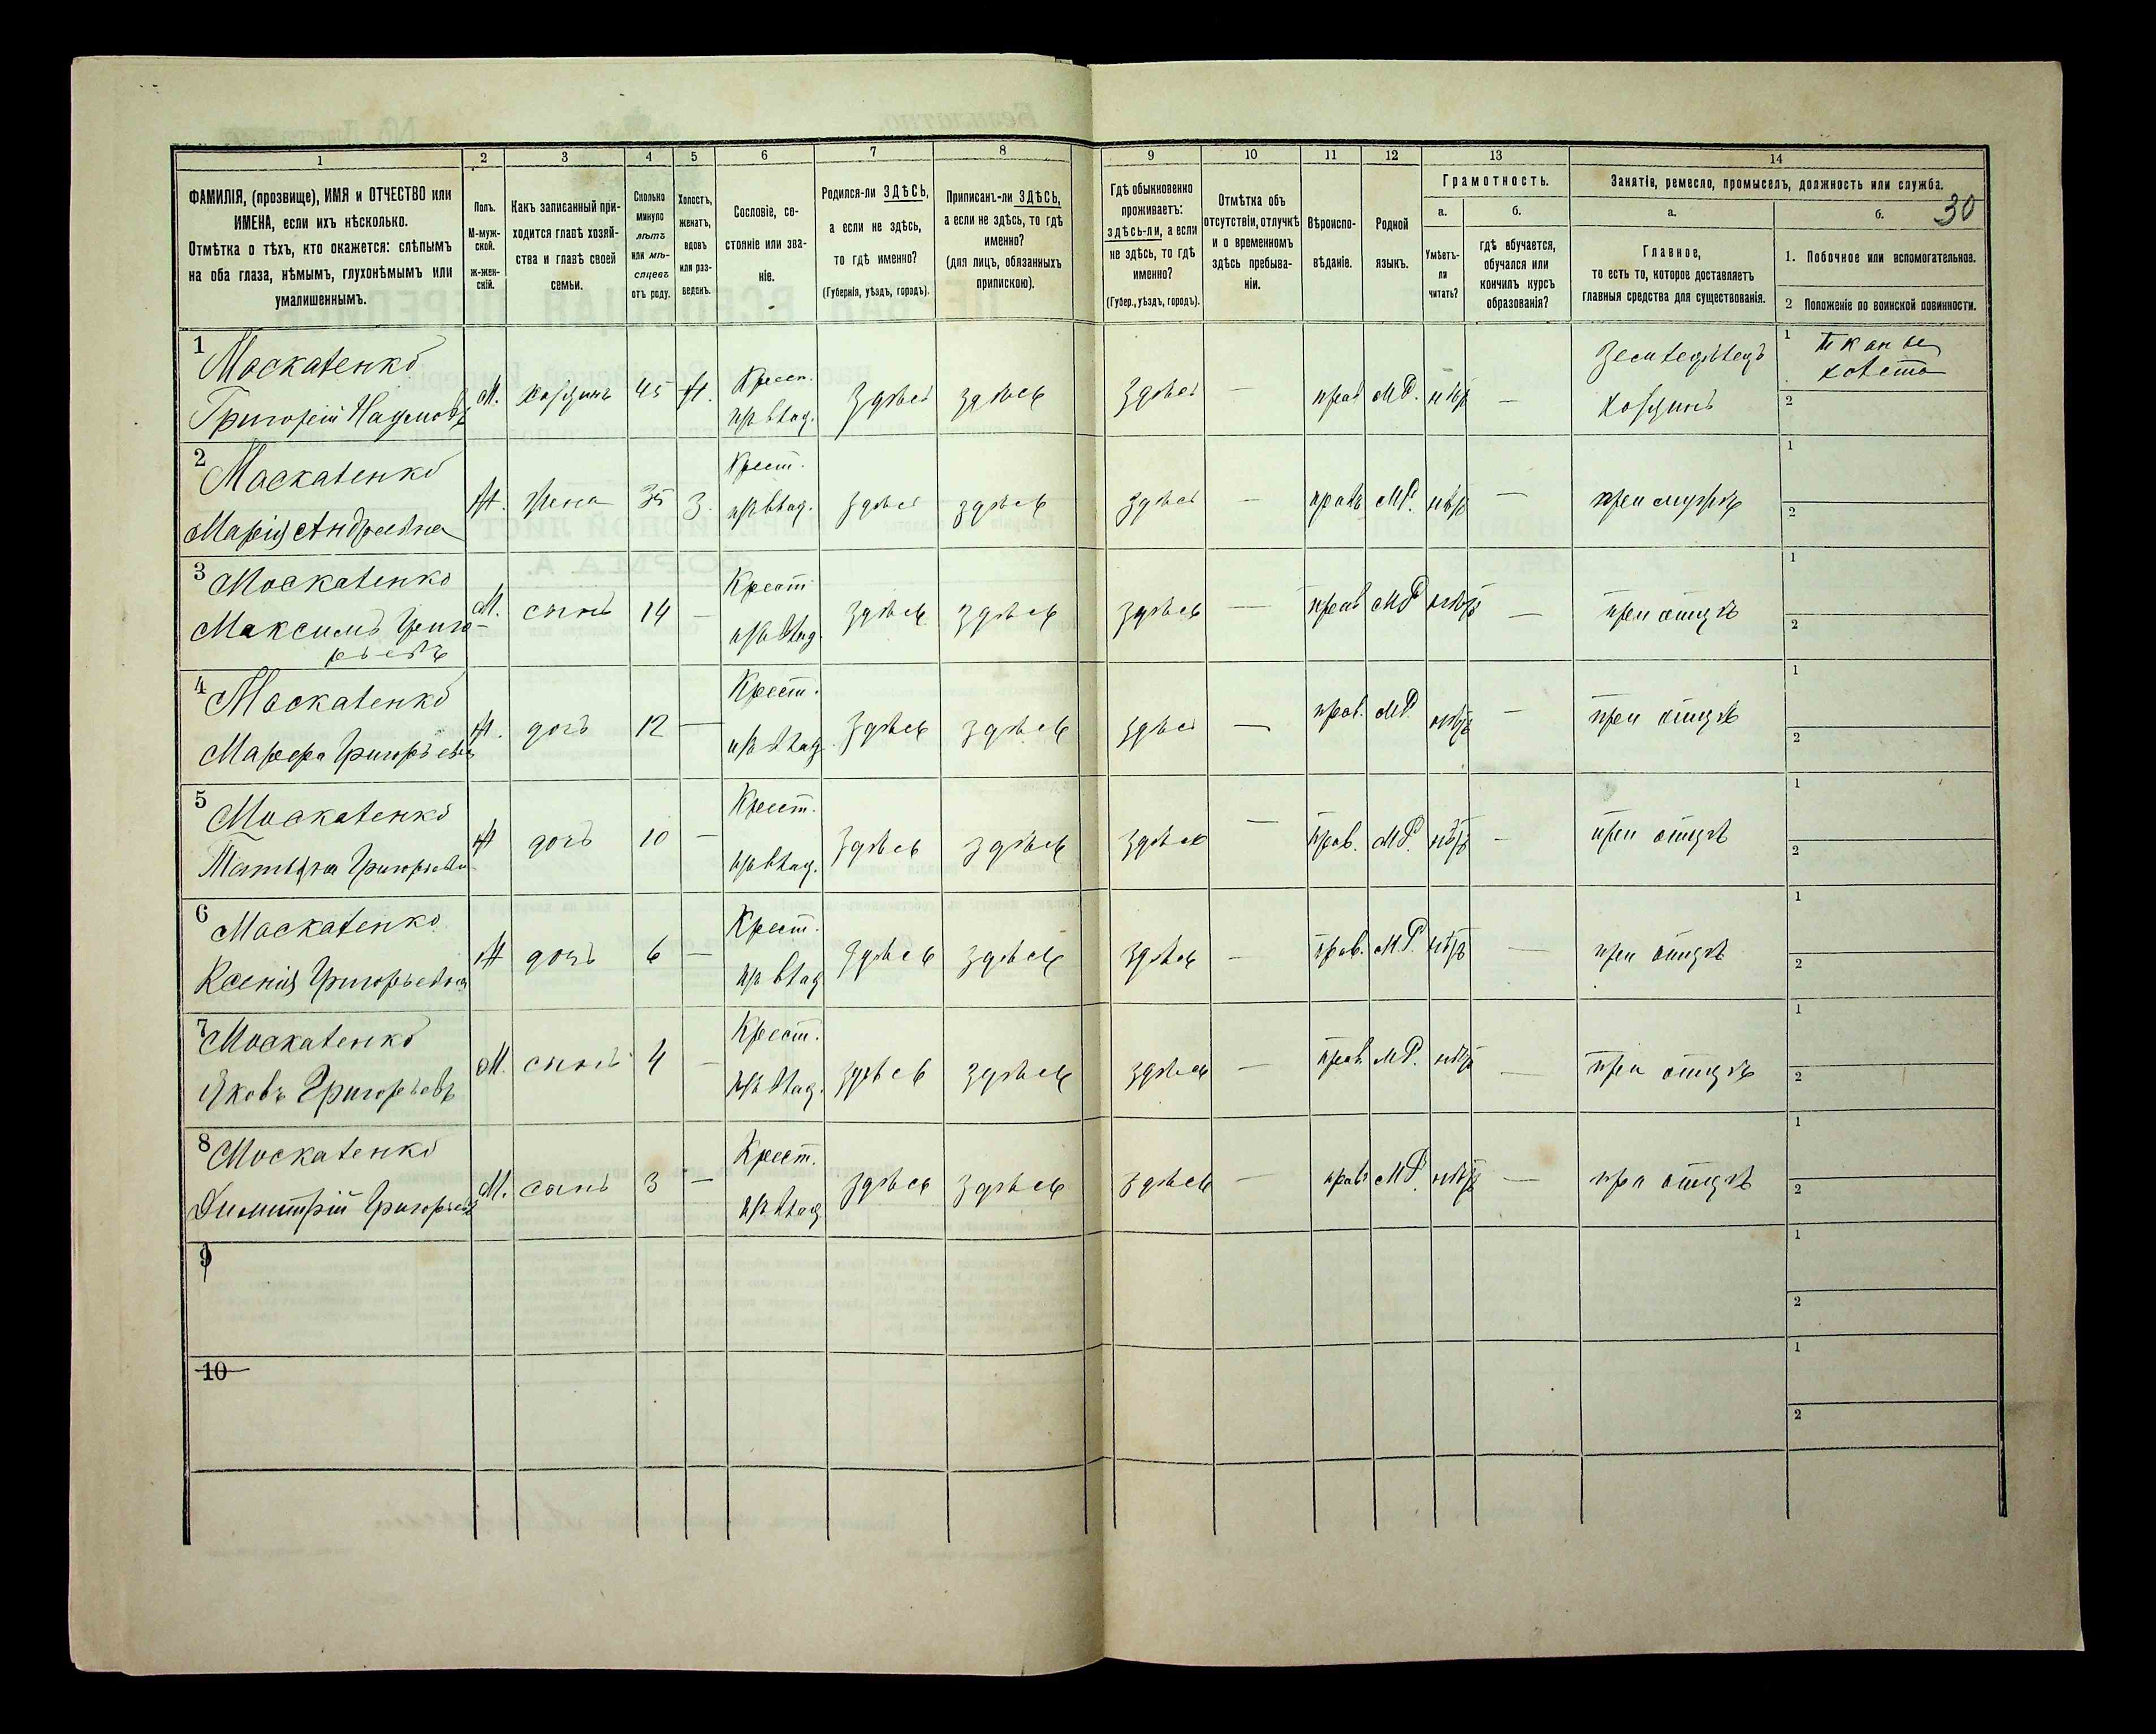 1 2 3 4 5 6 7 8 9 10 11 12 13 14
ФАМИЛІЯ, (прозвище), ИМЯ и ОТЧЕСТВО или
ИМЕНА, если ихъ нѣсколько.
Отмѣтка о тѣхъ, кто окажется: слѣпымъ
на оба глаза, нѣмымъ, глухонѣмымъ или
умалишеннымъ.
Полъ.
М-муж-
ской.
ж-жен-
скій.
Какъ записанный при-
ходится главѣ хозяй-
ства и главѣ своей
семьи.
Сколько
минуло
лѣтъ
или мѣ-
сяцевъ
отъ роду.
Холостъ,
женатъ,
вдовъ
или раз-
веденъ.
Сословіе, со-
стояніе или зва-
ніе.
Родился-ли ЗДѢСЬ,
а если не здѣсь,
то гдѣ именно?
(Губернія, уѣздъ, городъ).
Приписанъ-ли ЗДѢСЬ,
а если не здѣсь, то гдѣ
именно?
(для лицъ, обязанныхъ
припискою).
Гдѣ обыкновенно
проживаетъ:
здѣсь-ли, а если
не здѣсь, то гдѣ
именно?
(Губер., уѣздъ, городъ).
Отмѣтка объ
отсутствіи, отлучкѣ
и о временномъ
здѣсь пребыва-
ніи.
Вѣроиспо-
вѣданіе.
Родной
языкъ.
Грамотность.
а.
Умѣетъ-
ли
читать?
б.
гдѣ обучается,
обучался или
кончилъ курсъ
образованія?
Занятіе, ремесло, промыселъ, должность или служба.
30
а.
Главное,
то есть то, которое доставляетъ
главныя средства для существованія.
б.
1. Побочное или вспомогательное.
2 Положеніе по воинской повинности.
1 Москаленко
Григорій Наумовъ
М. хозяинъ 45 Ж. Крест. из влад. здѣсь здѣсь здѣсь — прав МР. нѣт —
Земледѣлецъ
хозяинъ
1 тканье
холста
2
2 Москаленко
Марія Андреевна
Ж. жена 35 З. Крест. из влад. здѣсь здѣсь здѣсь — прав МР. нѣт — при мужѣ
1
2
3 Москаленко
Максимъ Григо-
рьевъ
М. сынъ 14 — Крест. из влад. здѣсь здѣсь здѣсь — прав МР нѣтъ — при отцѣ
1
2
4 Москаленко
Марфа Григорьевна
Ж. дочь 12 — Крест. из влад. здѣсь здѣсь здѣсь — прав. МР. нѣтъ — при отцѣ
1
2
5 Москаленко
Татьяна Григорьевна
Ж дочь 10 — Крест. из влад. здѣсь здѣсь здѣсь — прав. МР. нѣтъ — при отцѣ
1
2
6 Москаленко
Ксенія Григорьевна
Ж дочь 6 — Крест. из влад здѣсь здѣсь здѣсь — прав. МР. нѣтъ — при отцѣ
1
2
7 Москаленко
Яковъ Григорьевъ
М. сынъ 4 — Крест. из влад. здѣсь здѣсь здѣсь — прав МР. нѣт — при отцѣ
1
2
8 Москаленко
Димитрій Григорьевъ
М. сынъ 3 — Крест. из влад здѣсь здѣсь здѣсь — прав МР. нѣтъ — при отцѣ
1
2
9
1
2
10
1
2